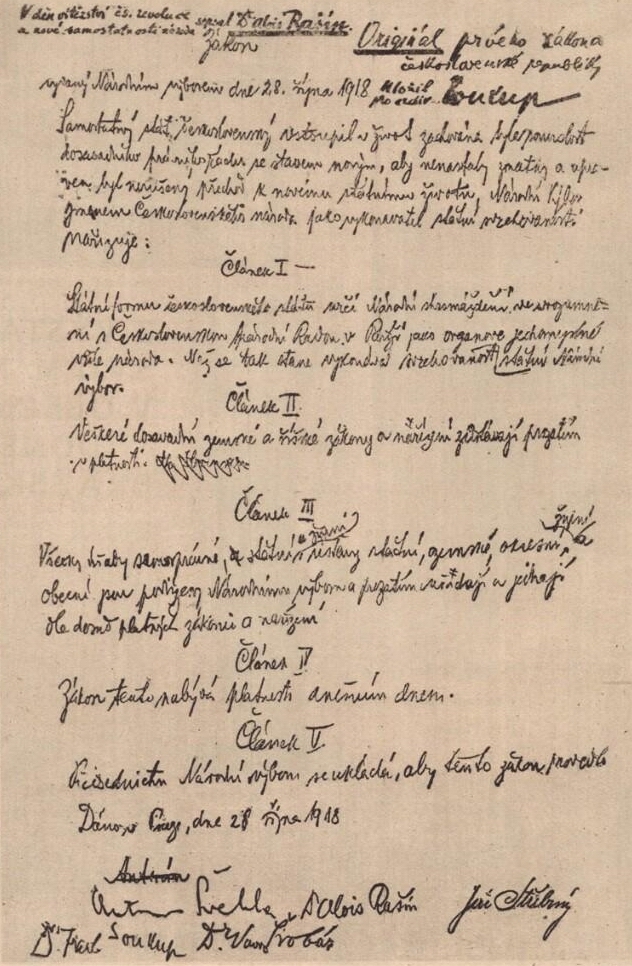 V den vítězství čs. revoluce
a nové samostatnosti národa
sepsal Dr Alois Rašín.
Originál prvého zákona
československé republiky
Zákon
vydaný Národním výborem dne 28. října 1918
uložil
Soukup
Samostatný stát Československý vstoupil v život. zachována byla souvislost
dosavadního právního řádu se stavem novým, aby nenastaly zmatky a upra-
ven byl nerušený přechod k novému státnímu životu, Národní Výbor
jménem Československého národa jako vykonavatel státní svrchovanosti
nařizuje:
Článek I —
Státní formu československého státu určí Národní shromáždění ve srozumě-
ní s Československou Národní Radou v Paříži jako orgánové jednomyslné
vůle národa. Než se tak stane vykonává svrchovanost státní Národní
výbor.
Článek II.
Veškeré dosavadní zemské a říšské zákony a nařízení zůstávají prozatím
v platnosti.
Článek III
Všecky úřady samosprávné, státní ústavy státní, zemské, okresní a
obecní jsou podřízeny Národnímu výboru a prozatím úřadují a jednají
dle dosud platných zákonů a nařízení
Článek IV
Zákon tento nabývá platnosti dnešním dnem.
Článek V
Předsednictvu Národní výboru se ukládá, aby tento zákon provedlo
Dáno v Praze, dne 28 října 1918
Antonín
Ant Švehla Dr Alois Rašín Jiří Stříbrný
Dr. Frant Soukup Dr. Vavro Šrobár